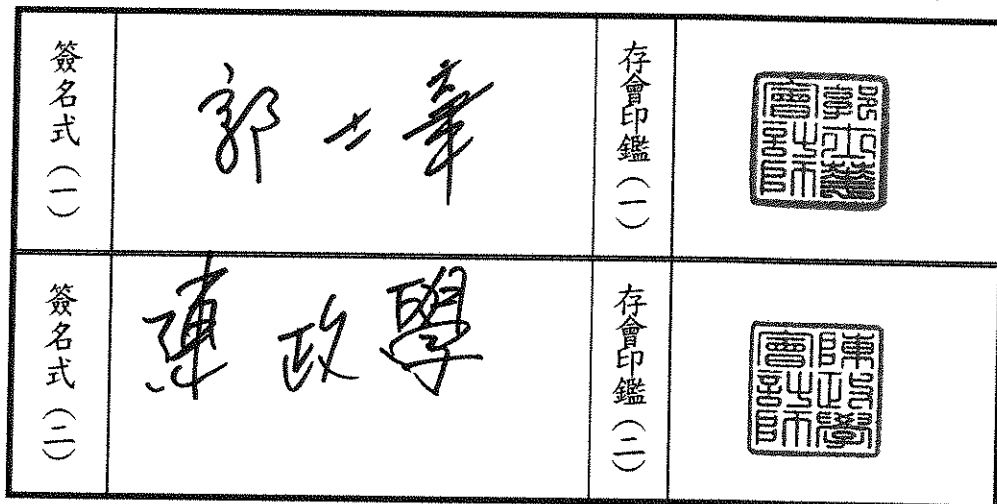 簽名式（一）
郭士華
存會印鑑（一）
郭士華
會計師
簽名式（二）
陳政學
存會印鑑（二）
陳政學
會計師